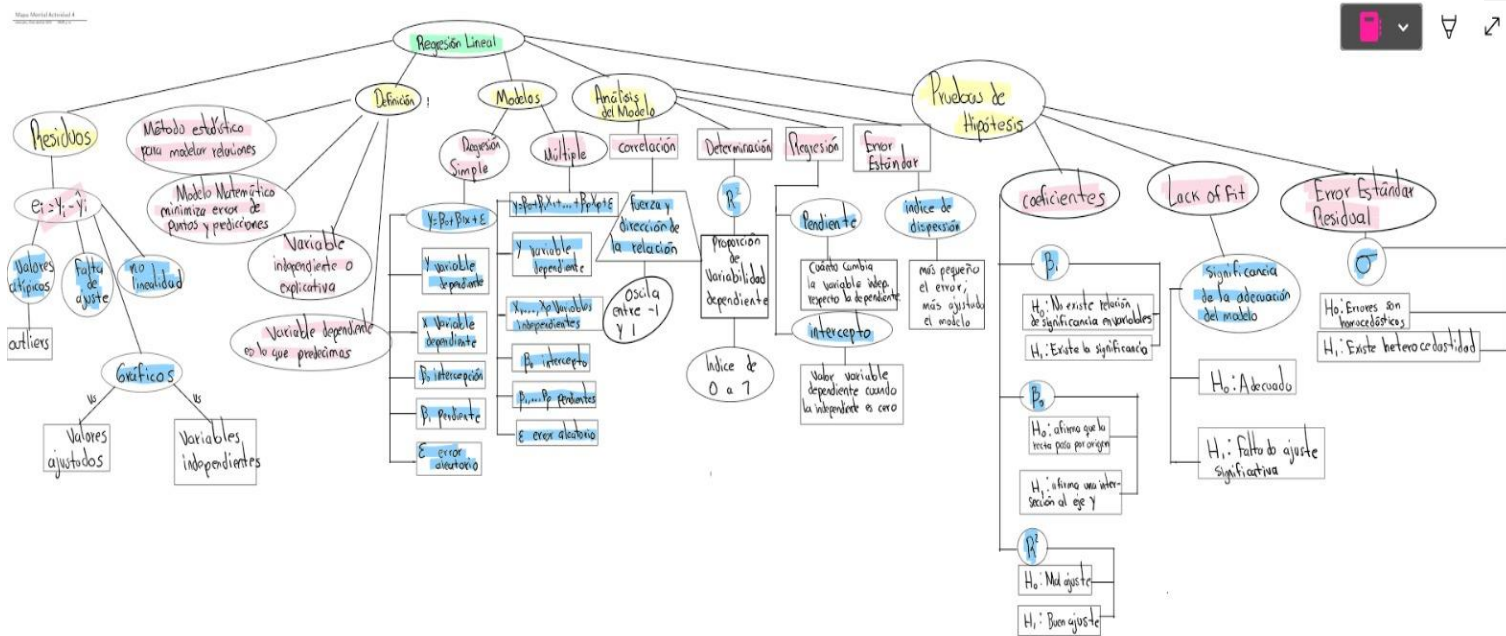 Mapa Mental Actividad 4
Regresión Lineal
Residuos
ei = Yi - Ŷi
Valores
atípicos
outliers
Falta
de
ajuste
no
linealidad
Gráficos
vs
Valores
ajustados
vs
Variables
independientes
Definición
Método estadístico
para modelar relaciones
Modelo Matemático
minimiza error de
puntos y predicciones
Variable
independiente o
explicativa
Variable dependiente
es lo que predecimos
Modelos
Regresión
Simple
y=β0+β1x+ε
Y variable
dependiente
x Variable
dependiente
β0 intercepción
β1 pendiente
ε error
aleatorio
Múltiple
y=β0+β1X1+...+βpXp+ε
Y variable
dependiente
X1,...,Xp Variables
independientes
β0 intercepto
β1,...βp pendientes
ε error aleatorio
Análisis
del Modelo
correlación
fuerza y
dirección de
la relación
Oscila
entre -1
y 1
Determinación
R²
Proporción
de
Variabilidad
dependiente
Indice de
0 a 1
Regresión
Pendiente
Cuánto cambia
la variable indep.
respecto la dependiente
intercepto
Valor variable
dependiente cuando
la independiente es cero
Error
Estándar
indice de
dispersión
más pequeño
el error,
más ajustado
el modelo
Pruebas de
Hipótesis
coeficientes
β1
H0: No existe relación
de significancia en variables
H1: Existe la significancia
β0
H0: afirma que la
recta pasa por origen
H1: afirma una inter-
sección al eje y
R²
H0: Mal ajuste
H1: Buen ajuste
Lack of Fit
Significancia
de la adecuación
del modelo
H0: Adecuado
H1: Falta de ajuste
significativa
Error Estándar
Residual
σ
H0: Errores son
homocedásticos
H1: Existe heterocedastidad